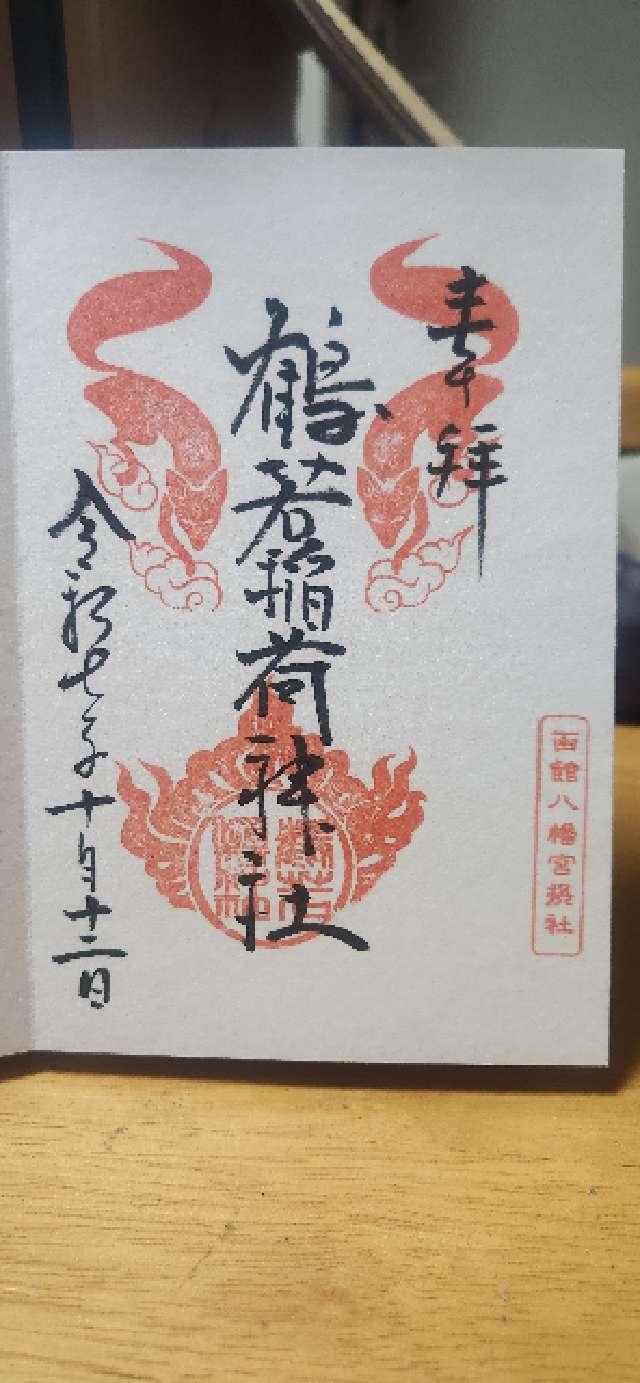 奉拝
鶴若稲荷神社
令和七年十月十二日
函館八幡宮摂社